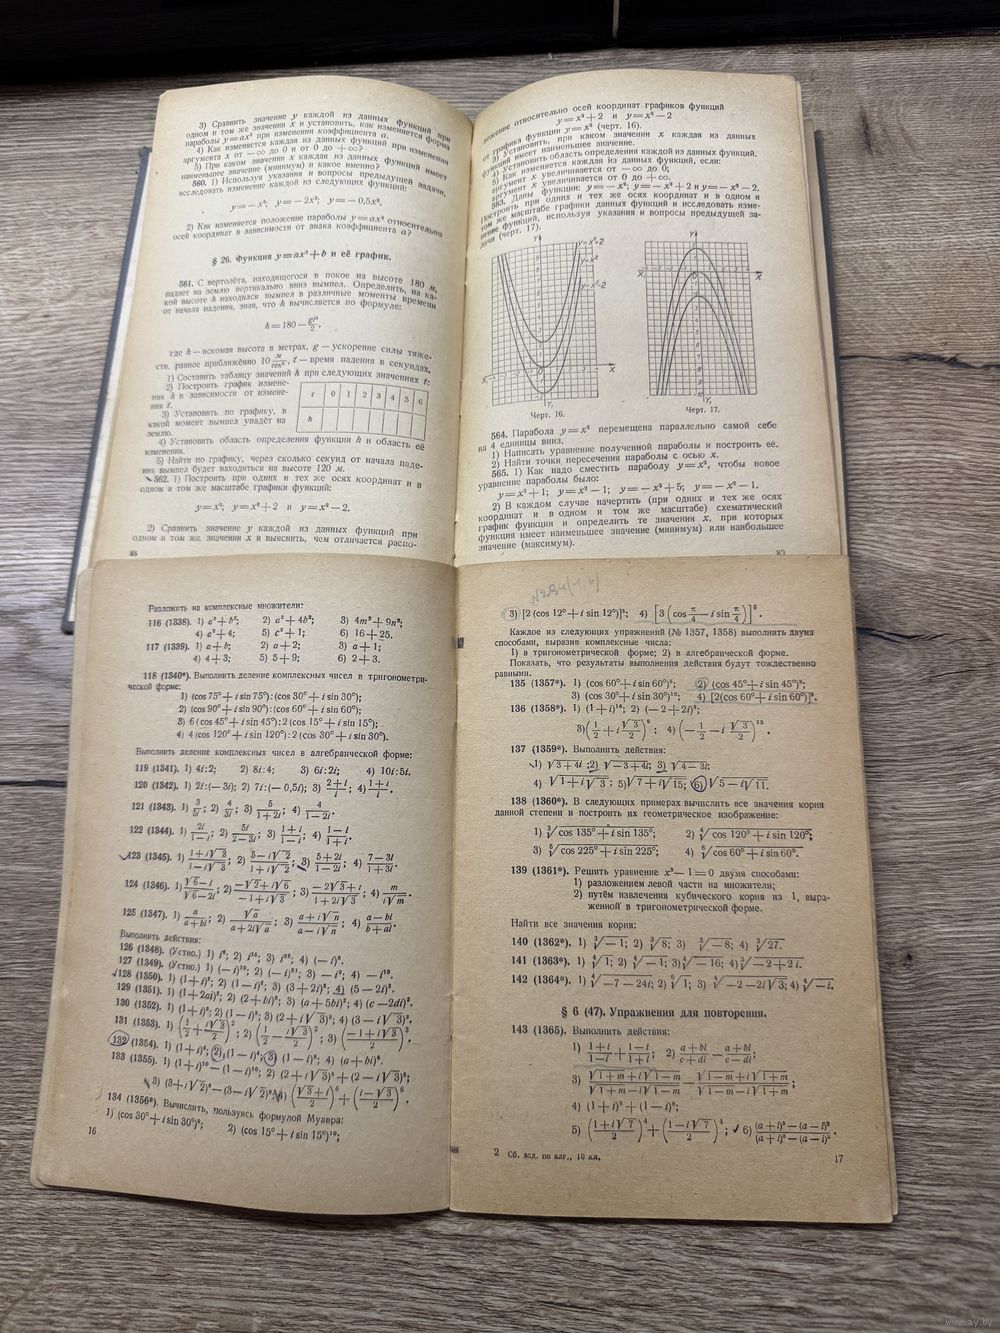 3) Сравнить значение y каждой из данных функций при
одном и том же значении x и установить, как изменяется форма
параболы y=ax² при изменении коэффициента a.
4) Как изменяется каждая из данных функций при изменении
аргумента x от −∞ до 0 и от 0 до +∞?
5) При каком значении x каждая из данных функций имеет
наименьшее значение (минимум) и какое именно?
560. 1) Используя указания и вопросы предыдущей задачи,
исследовать изменение каждой из следующих функций:
y=−x²; y=−2x²; y=−0,5x².
2) Как изменяется положение параболы y=ax² относительно
осей координат в зависимости от знака коэффициента a?
§ 26. Функция y=ax²+b и её график.
561. С вертолёта, находящегося в покое на высоте 180 м,
падает на землю вертикально вниз вымпел. Определить, на ка-
кой высоте h находился вымпел в различные моменты времени
от начала падения, зная, что h вычисляется по формуле:
h=180−gt²/2,
где h—искомая высота в метрах, g—ускорение силы тяже-
сти, равное приближённо 10 м/сек², t—время падения в секундах.
1) Составить таблицу значений h при следующих значениях t:
2) Построить график измене-
ния h в зависимости от измене-
ния t.
t 0 1 2 3 4 5 6
h
3) Установить по графику, в
какой момент вымпел упадёт на
землю.
4) Установить область определения функции h и область её
изменения.
5) Найти по графику, через сколько секунд от начала паде-
ния вымпел будет находиться на высоте 120 м.
562. 1) Построить при одних и тех же осях координат и в
одном и том же масштабе графики функций:
y=x²; y=x²+2 и y=x²−2.
2) Сравнить значение y каждой из данных функций при
одном и том же значении x и выяснить, чем отличается распо-
ложение относительно осей координат графиков функций
y=x²+2 и y=x²−2
от графика функции y=x² (черт. 16).
3) Установить, при каком значении x каждая из данных
функций имеет наименьшее значение.
4) Установить область определения каждой из данных функций.
5) Как изменяется каждая из данных функций, если:
аргумент x увеличивается от −∞ до 0;
аргумент x увеличивается от 0 до +∞.
563. Даны функции: y=−x²; y=−x²+2 и y=−x²−2.
Построить при одних и тех же осях координат и в одном и
том же масштабе графики данных функций и исследовать изме-
нение функций, используя указания и вопросы предыдущей за-
дачи (черт. 17).
y=x²+2
y=x²
y=x²−2
Черт. 16.
Черт. 17.
564. Парабола y=x² перемещена параллельно самой себе
на 4 единицы вниз.
1) Написать уравнение полученной параболы и построить её.
2) Найти точки пересечения параболы с осью x.
565. 1) Как надо сместить параболу y=x², чтобы новое
уравнение параболы было:
y=x²+1; y=x²−1; y=−x²+5; y=−x²−1.
2) В каждом случае начертить (при одних и тех же осях
координат и в одном и том же масштабе) схематический
график функции и определить те значения x, при которых
функция имеет наименьшее значение (минимум) или наибольшее
значение (максимум).
Разложить на комплексные множители:
116 (1338). 1) c²+b²; 2) a²+4b²; 3) 4m²+9n²;
4) a²+4; 5) c²+1; 6) 16+25.
117 (1339). 1) a+b; 2) a+2; 3) a+1;
4) 4+3; 5) 5+9; 6) 2+3.
118 (1340*). Выполнить деление комплексных чисел в тригонометри-
ческой форме:
1) (cos 75°+i sin 75°):(cos 30°+i sin 30°);
2) (cos 90°+i sin 90°):(cos 60°+i sin 60°);
3) 6(cos 45°+i sin 45°):2(cos 15°+i sin 15°);
4) 4(cos 120°+i sin 120°):2(cos 30°+i sin 30°).
Выполнить деление комплексных чисел в алгебраической форме:
119 (1341). 1) 4i:2; 2) 8i:4; 3) 6i:2i; 4) 10i:5i.
120 (1342). 1) 2i:(−3i); 2) 7i:(−0,5i); 3) (2+i)/i; 4) (1+i)/i.
121 (1343). 1) 3/5i; 2) 4/3i; 3) 5/(1+2i); 4) 4/(1−i).
122 (1344). 1) 2i/(1−i); 2) 5i/(2−3i); 3) (1+i)/(1−i); 4) (1−i)/(1+i).
123 (1345). 1) (1+i√3)/(1−i√3); 2) (5−i√2)/(1+i√2); 3) (5+2i)/(1−2i); 4) (7−3i)/(1+i)
124 (1346). 1) (√6−i)/(√6−2i); 2) (−√2+i√6)/(−1+i√3); 3) (−2√3+i)/(1+2i√3); 4) m/(i√m)
125 (1347). 1) a/(a+bi); 2) √a/(a+2i√a); 3) (a+i√n)/(a−i√n); 4) (a−bi)/(b+ai).
Выполнить действия:
126 (1348). (Устно.)
127 (1349). (Устно.)
128 (1350).
129 (1351).
130 (1352).
131 (1353). 1) (1/2+i√3/2)²; 2) (1/2−i√3/2)²; 3) ((−1+i√3)/2)³.
132 (1354).
133 (1355).
134 (1356*). Вычислить, пользуясь формулой Муавра:
1) (cos 30°+i sin 30°)⁸; 2) (cos 15°+i sin 15°)¹⁰;
16
3) [2(cos 12°+i sin 12°)]⁵; 4) [3(cos π/4−i sin π/4)]⁶.
Каждое из следующих упражнений (№ 1357, 1358) выполнить двумя
способами, выразив комплексные числа:
1) в тригонометрической форме; 2) в алгебраической форме.
Показать, что результаты выполнения действия будут тождественно
равными.
135 (1357*).
136 (1358*).
137 (1359*). Выполнить действия:
1) √(3+4i); 2) √(−3+4i); 3) √(4−3i);
4) √(1+i√3); 5) √(7+i√15); 6) √(5−i√11).
138 (1360*). В следующих примерах вычислить все значения корня
данной степени и построить их геометрическое изображение:
139 (1361*). Решить уравнение x³−1=0 двумя способами:
1) разложением левой части на множители;
2) путём извлечения кубического корня из 1, выра-
женной в тригонометрической форме.
Найти все значения корня:
140 (1362*). 1) ³√−1; 2) ³√8; 3) ³√−8; 4) ³√27.
141 (1363*).
142 (1364*).
§ 6 (47). Упражнения для повторения.
143 (1365). Выполнить действия:
1) (1+i)/(1−i)+(1−i)/(1+i); 2) (a+bi)/(c+di)−(a−bi)/(c−di);
3) (√(1+m)+i√(1−m))/(√(1+m)−i√(1−m))−(√(1−m)+i√(1+m))/(√(1−m)−i√(1+m));
5) ((1+i√7)/2)⁴+((1−i√7)/2)⁴;
2 Сб. зад. по алг., 10 кл.
17
www.ay.by